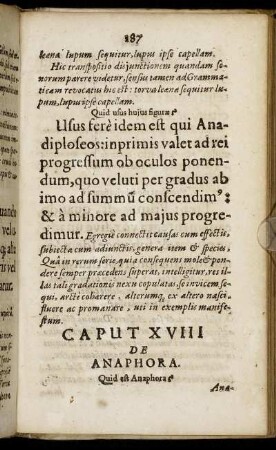 187
leana lupum sequitur, lupus ipse capellam.
Hic transpositio disjunctionem quandam so-
norum parere videtur, sensu tamen ad Gramma-
ticam revocatus hic est: torva leana sequitur lu-
pum, lupus ipse capellam.
Quid usus hujus figuræ?
Usus ferè idem est qui Ana-
diploseos: inprimis valet ad rei
progressum ob oculos ponen-
dum, quo veluti per gradus ab
imo ad summū conscendim9:
& à minore ad majus progre-
dimur. Egregiè connectit causas cum effectis,
subjecta cum adjunctis, genera item & species,
Quâ in rerum serie, quia consequens mole & pon-
dere semper præcedens superat, intelligitur, res il-
las tali gradationis nexu copulatas se invicem se-
qui, arctè cohærere, alterumq, ex altero nasci,
fluere ac promanare, uti in exemplis manife-
stum.
CAPUT XVIII
DE
ANAPHORA.
Quid est Anaphora?
Ana-